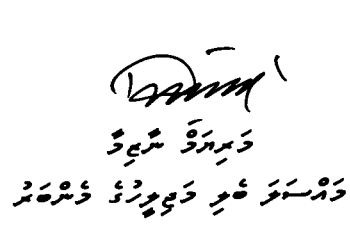 މަރިޔަމް ނާޒިމާ
މައްސަލަ ބެލި މަޖިލީހުގެ މެންބަރު